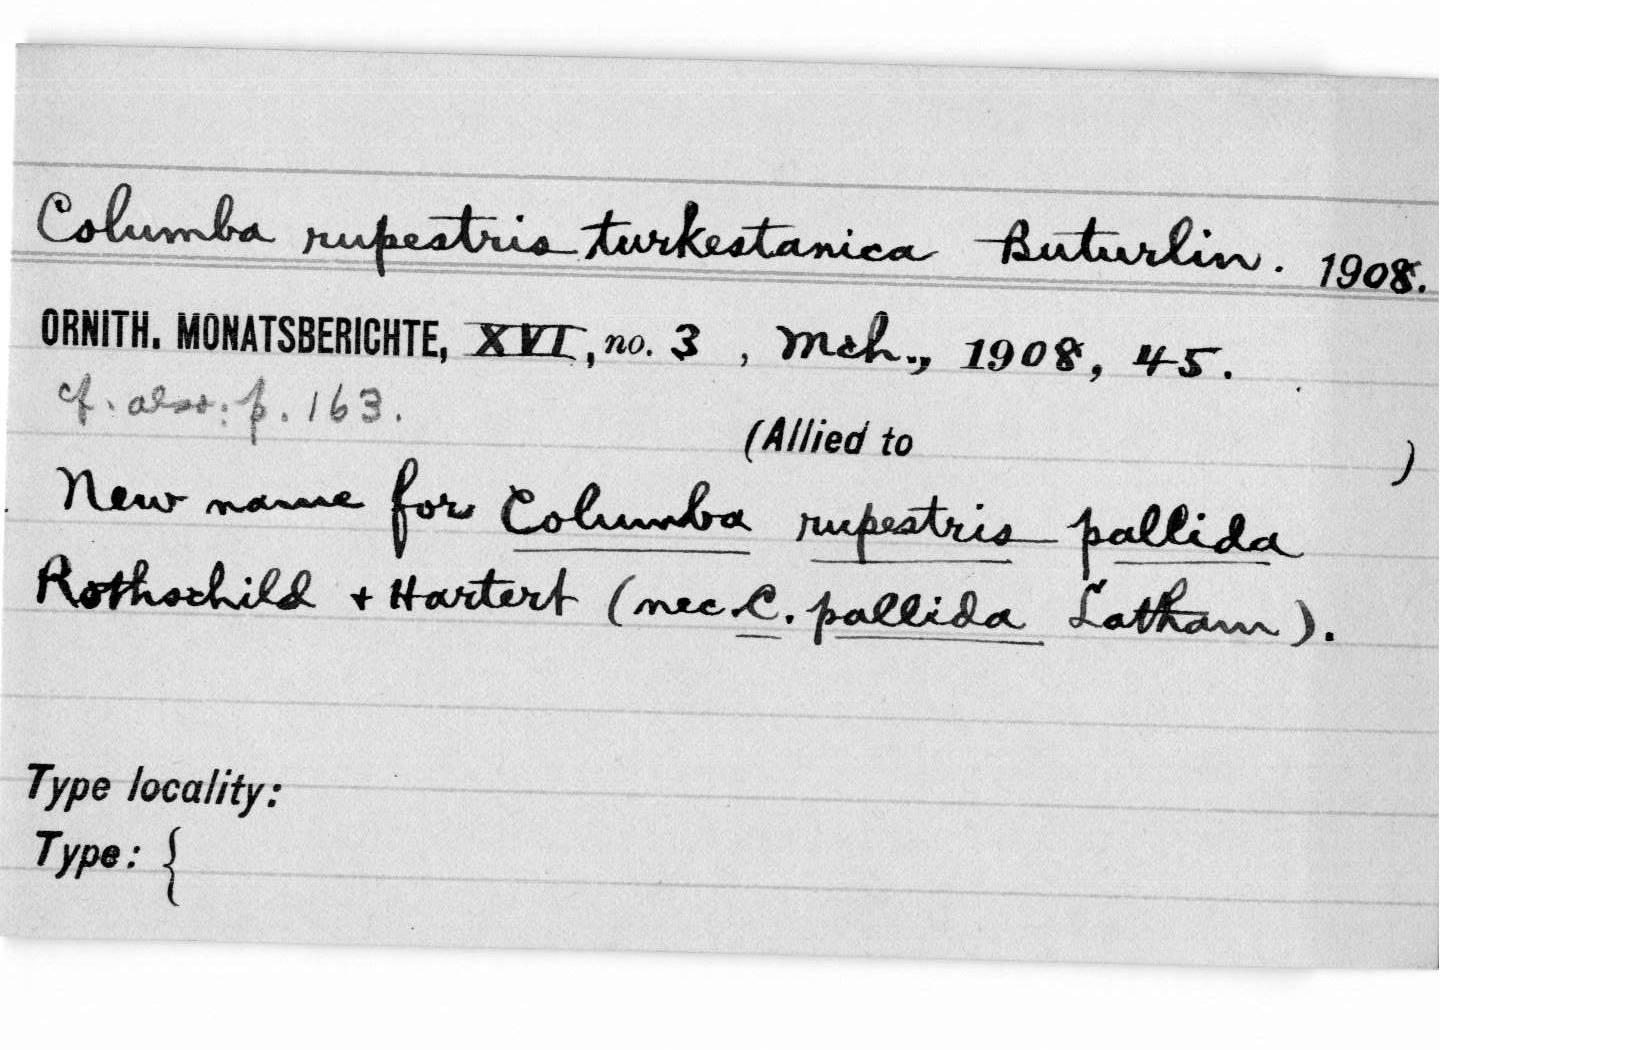 Columba rupestris turkestanica Buturlin. 1908.
ORNITH. MONATSBERICHTE, XVI, no. 3, Mch., 1908, 45.
cf. also: p. 163.
(Allied to )
New name for Columba rupestris pallida
Rothschild + Hartert (nec. C. pallida Latham).
Type locality:
Type: {